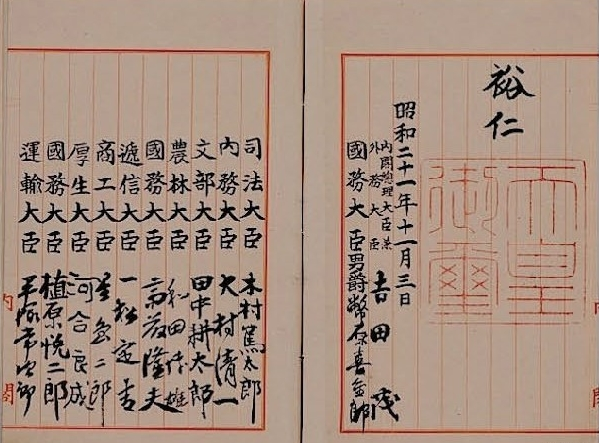 裕仁
天皇御璽
昭和二十一年十一月三日
内閣総理大臣兼
外務大臣 吉田茂
國務大臣 男爵幣原喜重郎
司法大臣 木村篤太郎
内務大臣 大村清一
文部大臣 田中耕太郎
農林大臣 和田博雄
國務大臣 斎藤隆夫
遞信大臣 一松定吉
商工大臣 星島二郎
厚生大臣 河合良成
國務大臣 植原悦二郎
運輸大臣 平塚常次郎
内閣